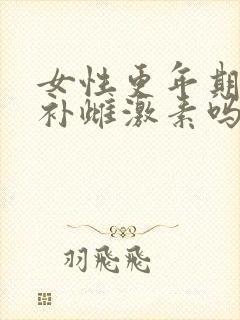 女性更年期
补雌激素吗
羽飛飛